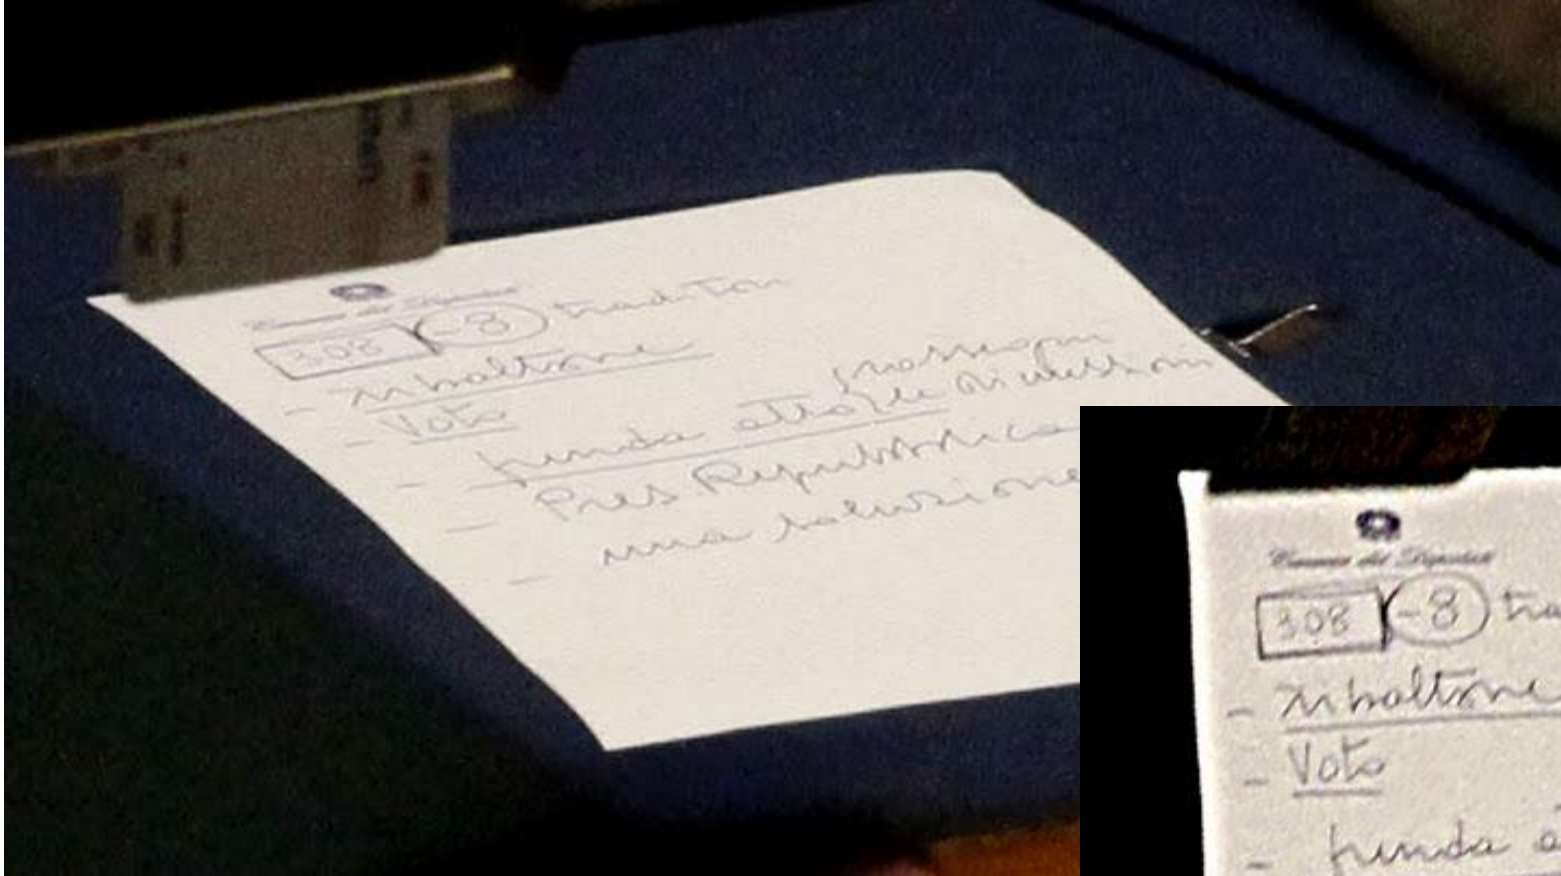 Camera dei Deputati
308 -8 traditori
- ribaltone
- Voto
- prenda atto (le dimissioni
rassegni
- Pres. Repubblica
- una soluzione
Camera dei Deputati
308 -8 tra
- ribaltone
- Voto
- prenda a